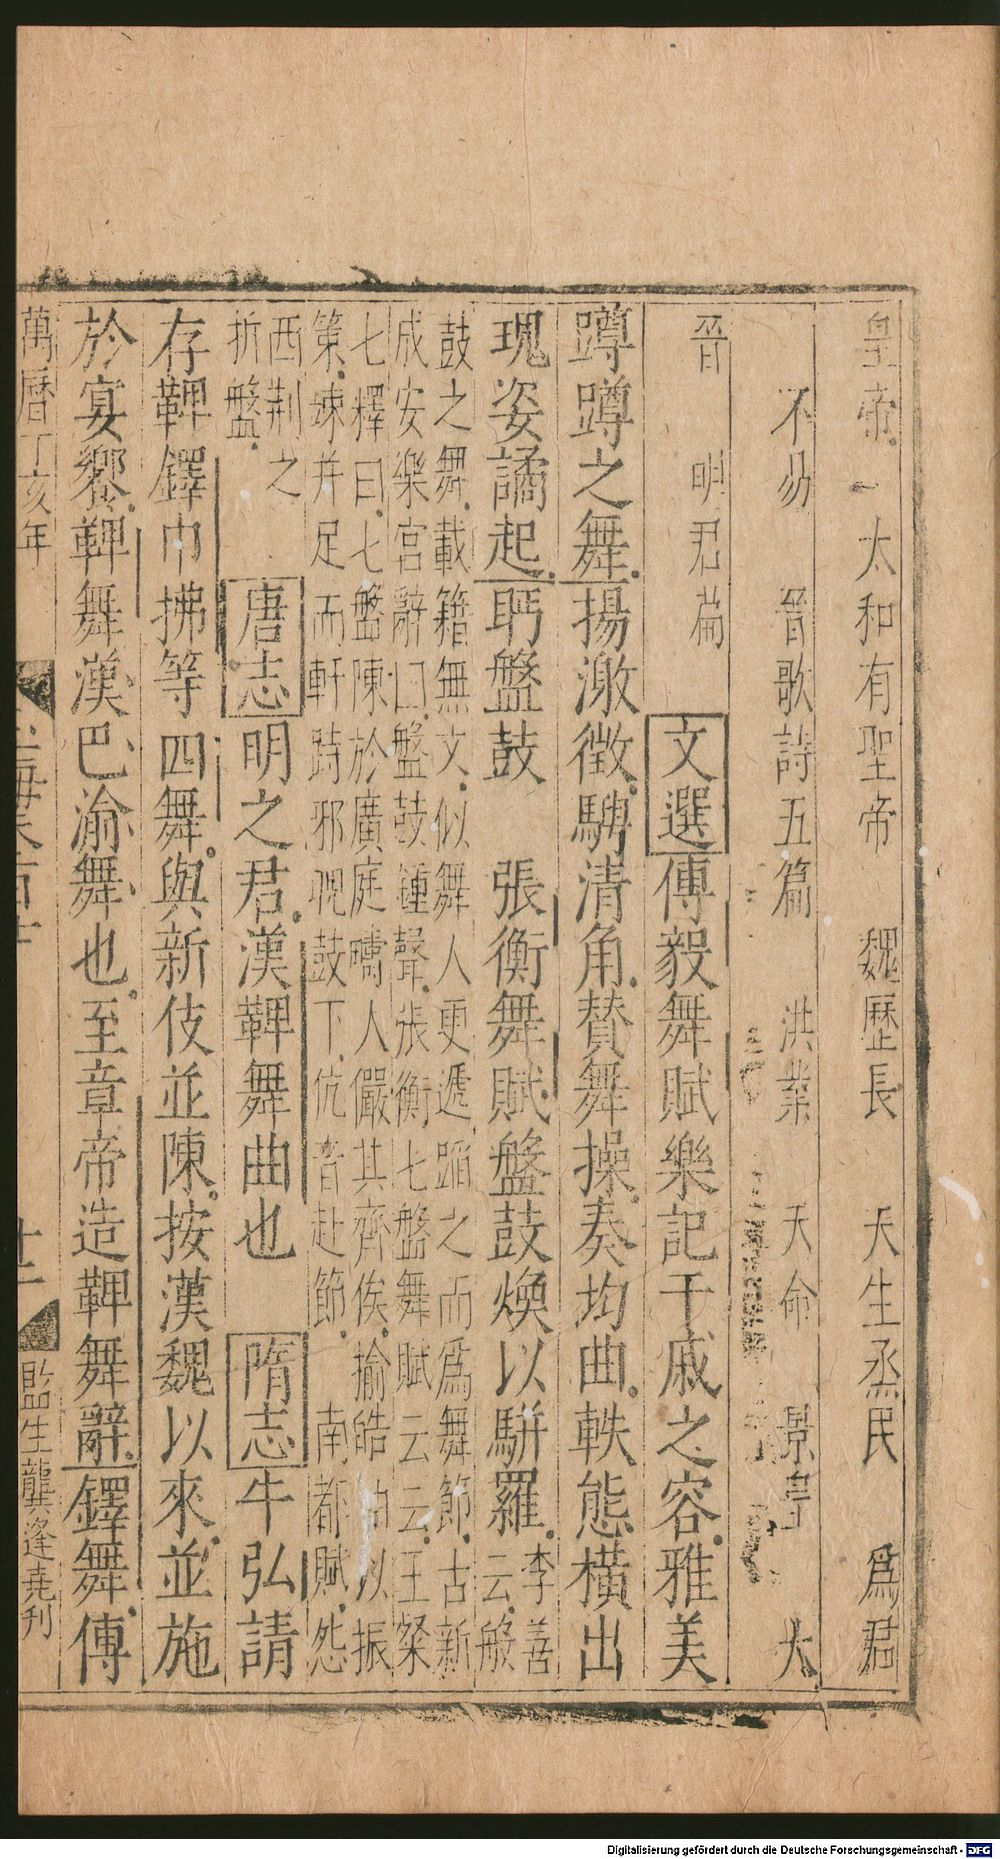 皇帝 太和有聖帝 魏歷長 天生烝民 爲君
不易 晉歌詩五篇 洪業 天命 景皇 大
晉 明君篇
文選傅毅舞賦樂記干戚之容雅美
蹲蹲之舞揚激徵騁清角贊舞操奏均曲軼態橫出
瑰姿譎起眄盤鼓 張衡舞賦盤鼓煥以駢羅李善
云般
鼓之舞載籍無文似舞人更遞蹈之而爲舞節古新
成安樂宮辭曰盤鼓鍾聲張衡七盤舞賦云云王粲
七釋曰七盤陳於廣庭疇人儼其齊俟揄皓袖以振
策竦并足而軒跱邪睨鼓下伉音赴節 南都賦怨
西荆之
折盤
唐志明之君漢鞞舞曲也 隋志牛弘請
存鞞鐸巾拂等四舞與新伎並陳按漢魏以來並施
於宴饗鞞舞漢巴渝舞也至章帝造鞞舞辭鐸舞傅
萬曆丁亥年 十二 監生龔逢堯刋
Digitalisierung gefördert durch die Deutsche Forschungsgemeinschaft - DFG